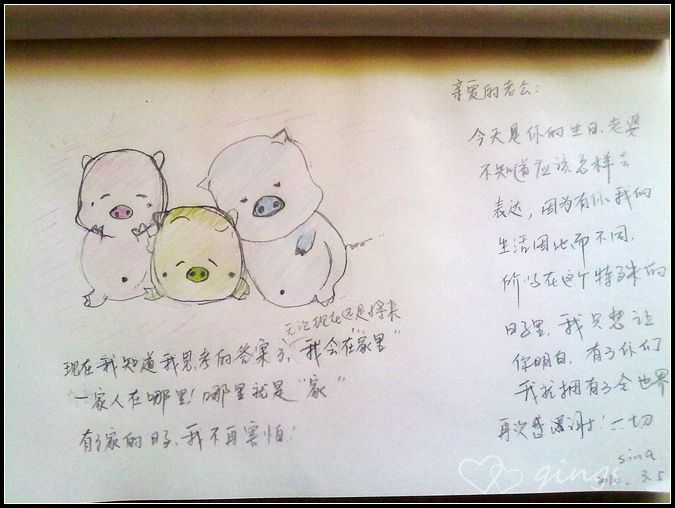 亲爱的老公:
今天是你的生日,老婆
不知道应该怎样去
表达,因为有你我的
生活因此而不同.
所以在这个特殊的
日子里,我只想让
你明白,有了你们
我就拥有了全世界
再次感谢! 一切
sina.
3.5
无论现在还是将来
现在我知道我思考的答案了,我会在"家里"
一家人在哪里!哪里就是"家"
有了家的日子,我不再害怕!
qings